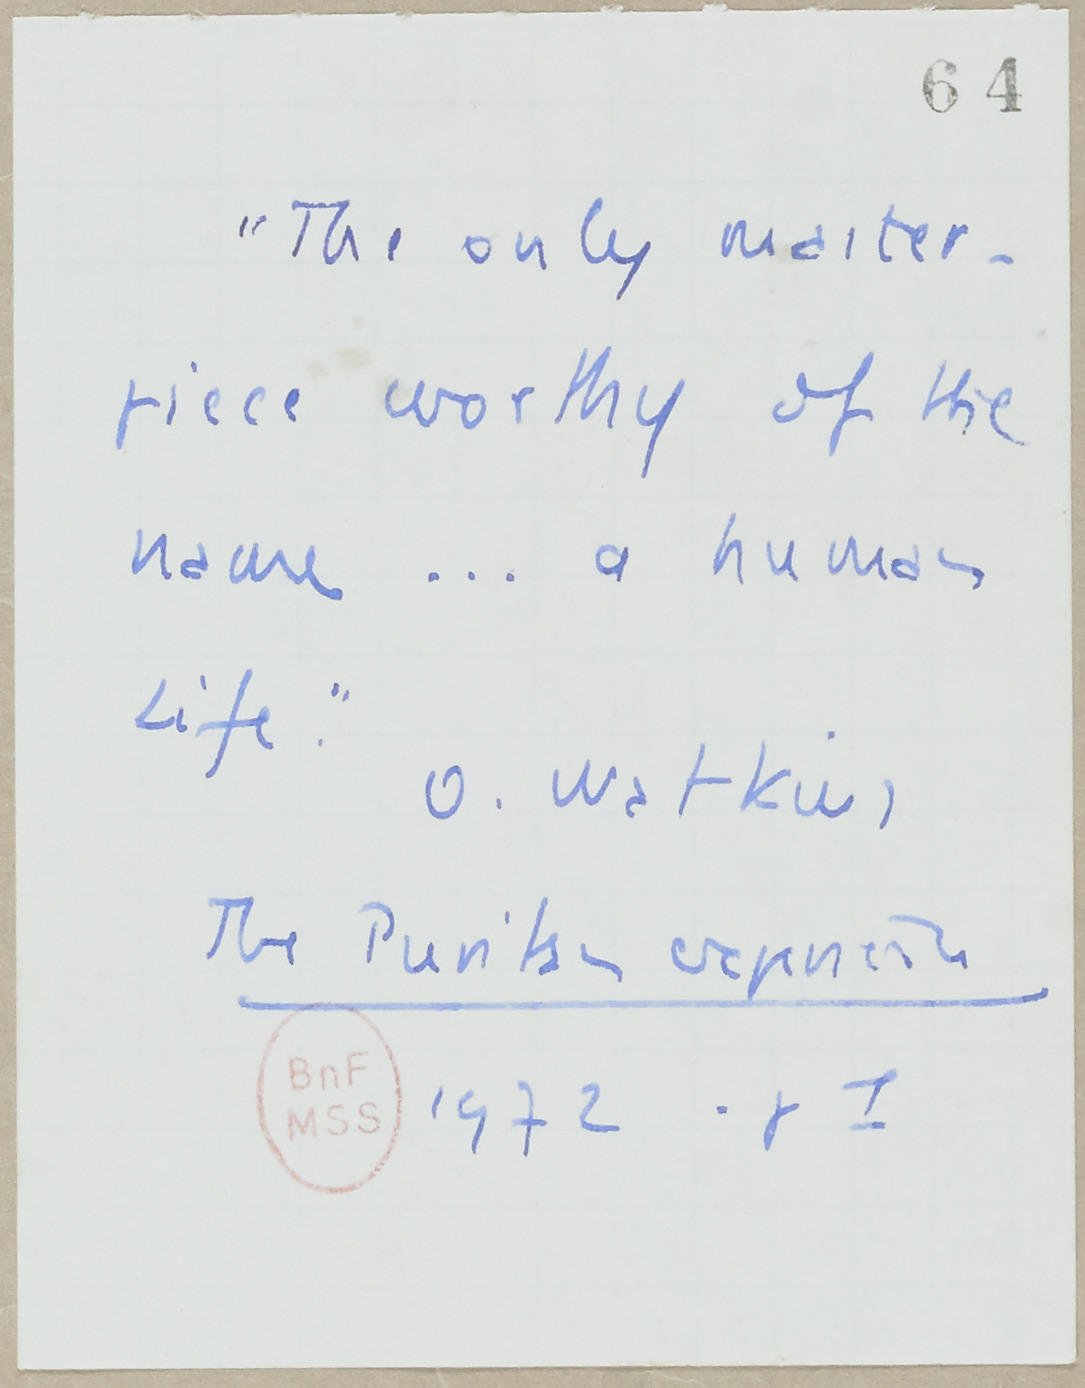 64
"The only master-
piece worthy of the
name ... a human
Life."
O. Watkins
The Puritan experience
1972 . p I
BnF
MSS